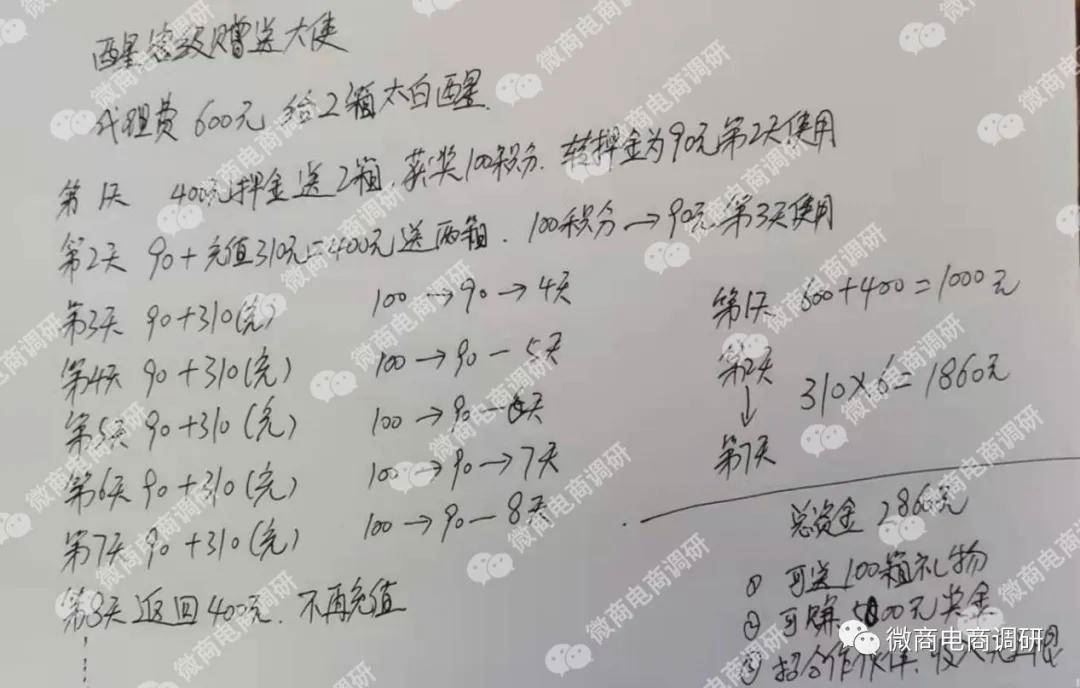 酉星客级赠送大使
代理费600元 给2箱太白酉星.
第1天 400元押金送2箱, 获奖100积分. 转押金为90元第2天使用
第2天 90+充值310元=400元送两箱. 100积分→90元.第3天使用
第3天 90+310(充) 100→90→4天
第4天 90+310(充) 100→90-5天
第5天 90+310(充) 100→90-6天
第6天 90+310(充) 100→90→7天
第7天 90+310(充) 100→90-8天
第8天返回400元.不再充值
第1天 600+400=1000元
第2天
↓ 310×6=1860元
第7天
总资金 2860元
① 可送100箱礼物
② 可赚5000元奖金
③ 招合作伙伴.收入无上限
微商电商调研